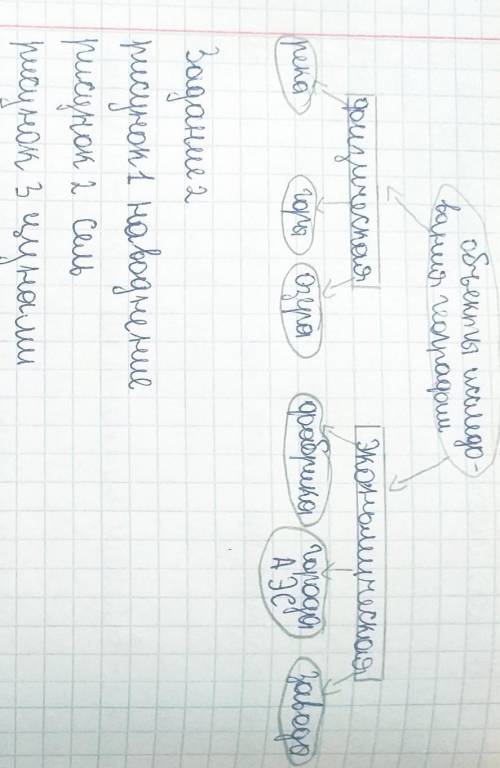 объекты исследо-
вания географии
физическая
экономическая
река
горы
озера
фабрика
города
АЭС
заводы
Задание 2
рисунок 1 наводнение
рисунок 2 сель
рисунок 3 цунами